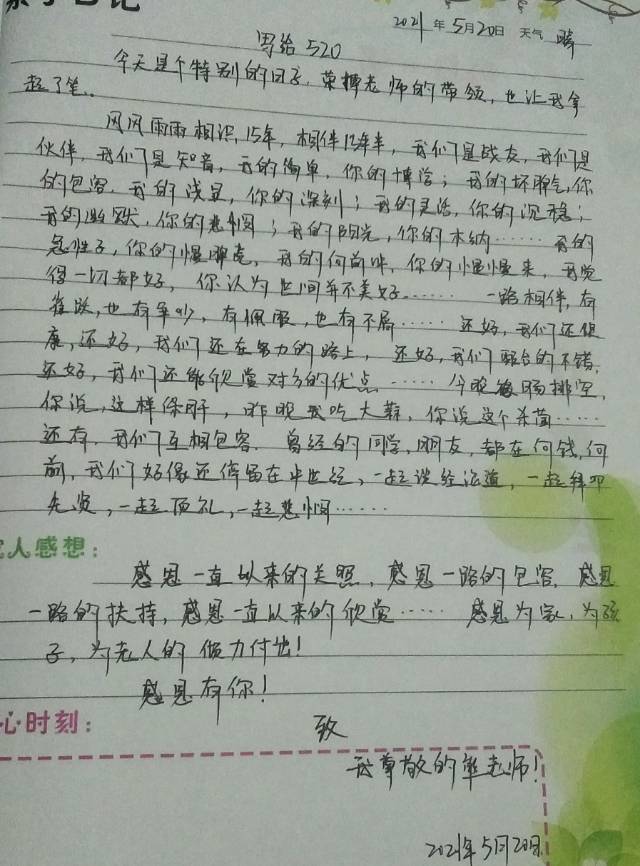 亲子日记
2021年5月20日 天气 晴
写给520
今天是个特别的日子,荣搏老师的带领,也让我拿
起了笔..
风风雨雨相识,15年,相伴12年半,我们是战友,我们是
伙伴,我们是知音,我的简单,你的博学;我的坏脾气,你
的包容,我的浅显,你的深刻;我的灵活,你的沉稳;
我的幽默,你的悲悯;我的阳光,你的木纳……我的
急性子,你的慢脾气,我的向前冲,你的慢慢来,我觉
得一切都好,你认为世间并不美好……一路相伴,有
有争吵,有佩服,也有不屑……还好,我们还健
康,还好,我们还在努力的路上,还好,我们配合的不错,
还好,我们还能欣赏对方的优点……今晚
你说,这样保肝,昨晚我吃大蒜,你说这个杀菌……
还有,我们互相包容.曾经的同学,朋友,都在向钱,向
前,我们好像还停留在半世纪,一起谈经论道,一起拜叩
先贤,一起顶礼,一起悲悯……
人感想:
感恩一直以来的关照,感恩一路的包容,感恩
一路的扶持,感恩一直以来的欣赏……感恩为家,为孩
子,为老人的倾力付出!
感恩有你!
心时刻:
致
我尊敬的熊老师!
2021年5月20日